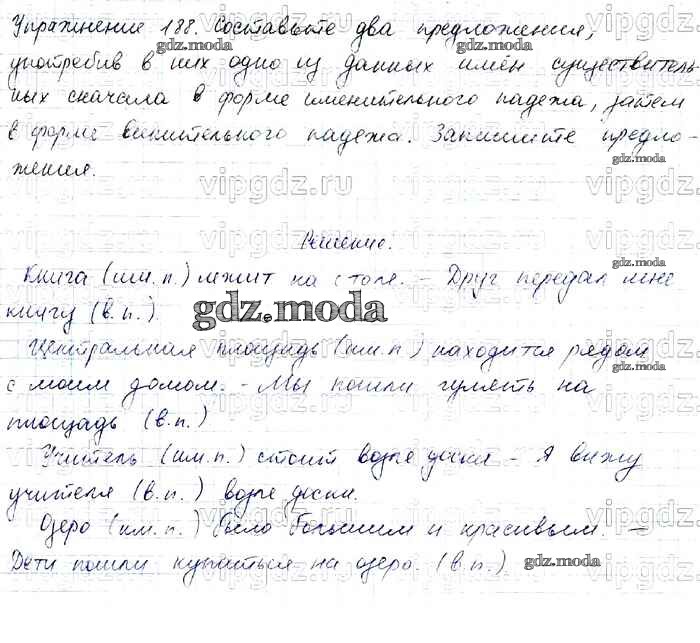 Упражнение 188. Составьте два предложения,
употребив в них одно из данных имён существитель-
ных сначала в форме именительного падежа, затем
в форме винительного падежа. Запишите предло-
жения.
Решение.
Книга (им.п.) лежит на столе. - Друг передал мне
книгу (в.п.).
Центральная площадь (им.п.) находится рядом
с моим домом. - Мы пошли гулять на
площадь (в.п.)
Учитель (им.п.) стоит возле доски - Я вижу
учителя (в.п.) возле доски.
Озеро (им.п.) было большим и красивым. -
Дети пошли купаться на озеро. (в.п.)
gdz.moda
vipgdz.ru